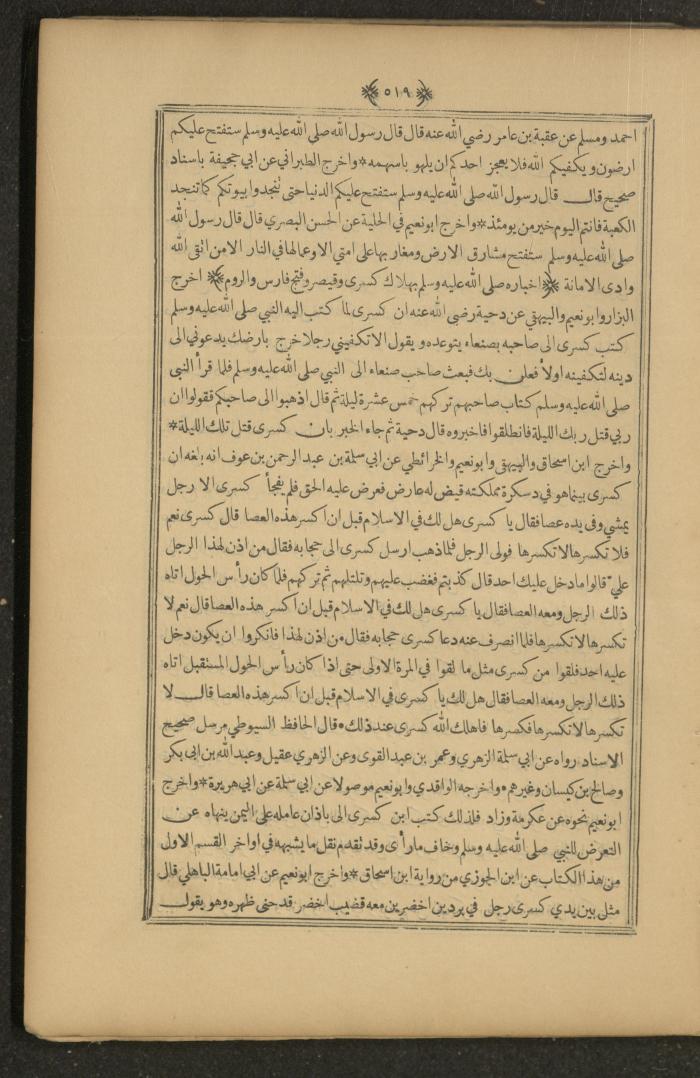 ﴿ ٥١٩ ﴾
احمد ومسلم عن عقبة بن عامر رضي الله عنه قال قال رسول الله صلى الله عليه وسلم ستفتح عليكم
ارضون ويكفيكم الله فلا يعجز احدكم ان يلهو باسهمه * واخرج الطبراني عن ابي جحيفة باسناد
صحيح قال قال رسول الله صلى الله عليه وسلم ستفتح عليكم الدنيا حتى تنجدوا بيوتكم كما تنجد
الكعبة فانتم اليوم خير من يومئذ * واخرج ابو نعيم في الحلية عن الحسن البصري قال قال رسول الله
صلى الله عليه وسلم ستفتح مشارق الارض ومغاربها على امتي الا وعمالها في النار الا من اتقى الله
وادى الامانة ﴿ اخباره صلى الله عليه وسلم بهلاك كسرى وقيصر وفتح فارس والروم ﴾ اخرج
البزار وابو نعيم والبيهقي عن دحية رضي الله عنه ان كسرى لما كتب اليه النبي صلى الله عليه وسلم
كتب كسرى الى صاحبه بصنعاء يتوعده و يقول الا تكفيني رجلا خرج بارضك يدعوني الى
دينه لتكفينه اولأ فعلن بك فبعث صاحب صنعاء الى النبي صلى الله عليه وسلم فلما قرأ النبي
صلى الله عليه وسلم كتاب صاحبهم تركهم خمس عشرة ليلة ثم قال اذهبوا الى صاحبكم فقولوا ان
ربي قتل ربك الليلة فانطلقوا فاخبروه قال دحية ثم جاء الخبر بان كسرى قتل تلك الليلة *
واخرج ابن اسحاق والبيهقي وابو نعيم والخرائطي عن ابي سلمة بن عبد الرحمن بن عوف انه بلغه ان
كسرى بينما هو في دسكرة مملكته قيض له عارض فعرض عليه الحق فلم يفجأ كسرى الا رجل
يمشي وفي يده عصا فقال يا كسرى هل لك في الاسلام قبل ان اكسر هذه العصا قال كسرى نعم
فلا تكسرها لا تكسرها فولى الرجل فلما ذهب ارسل كسرى الى حجابه فقال من اذن لهذا الرجل
علي قالوا ما دخل عليك احد قال كذبتم فغضب عليهم وتلتلهم ثم تركهم فلما كان رأس الحول اتاه
ذلك الرجل ومعه العصا فقال يا كسرى هل لك في الاسلام قبل ان اكسر هذه العصا قال نعم لا
تكسرها لا تكسرها فلما انصرف عنه دعا كسرى حجابه فقال من اذن لهذا فانكروا ان يكون دخل
عليه احد فلقوا من كسرى مثل ما لقوا في المرة الاولى حتى اذا كان رأس الحول المستقبل اتاه
ذلك الرجل ومعه العصا فقال هل لك يا كسرى في الاسلام قبل ان اكسر هذه العصا قال لا
تكسرها لا تكسرها فكسرها فاهلك الله كسرى عند ذلك * قال الحافظ السيوطي مرسل صحيح
الاسناد رواه عن ابي سلمة الزهري وعمر بن عبد القوى وعن الزهري عقيل وعبد الله بن ابي بكر
وصالح بن كيسان وغيرهم * واخرجه الواقدي وابو نعيم موصولا عن ابي سلمة عن ابي هريرة * واخرج
ابو نعيم نحوه عن عكرمة وزاد فلذلك كتب ابن كسرى الى باذان عامله على اليمن ينهاه عن
التعرض للنبي صلى الله عليه وسلم وخاف ما رأى وقد تقدم نقل ما يشبهه في اواخر القسم الاول
من هذا الكتاب عن ابن الجوزي من رواية ابن اسحاق * واخرج ابو نعيم عن ابي امامة الباهلي قال
مثل بين يدي كسرى رجل في بردين اخضرين معه قضيب اخضر قد حنى ظهره وهو يقول